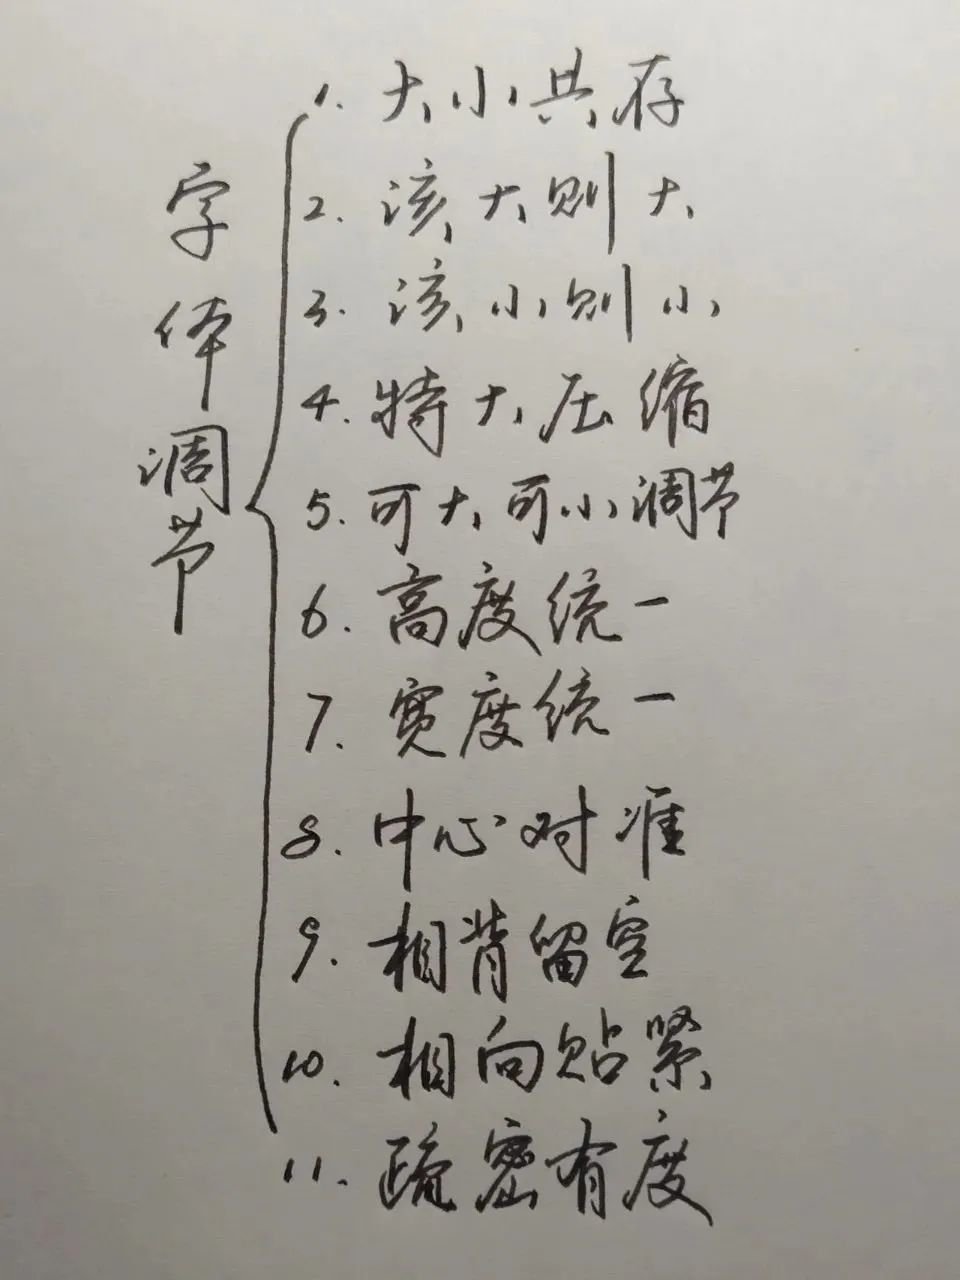 字体调节
1. 大小共存
2. 该大则大
3. 该小则小
4. 特大压缩
5. 可大可小调节
6. 高度统一
7. 宽度统一
8. 中心对准
9. 相背留空
10. 相向贴紧
11. 疏密有度